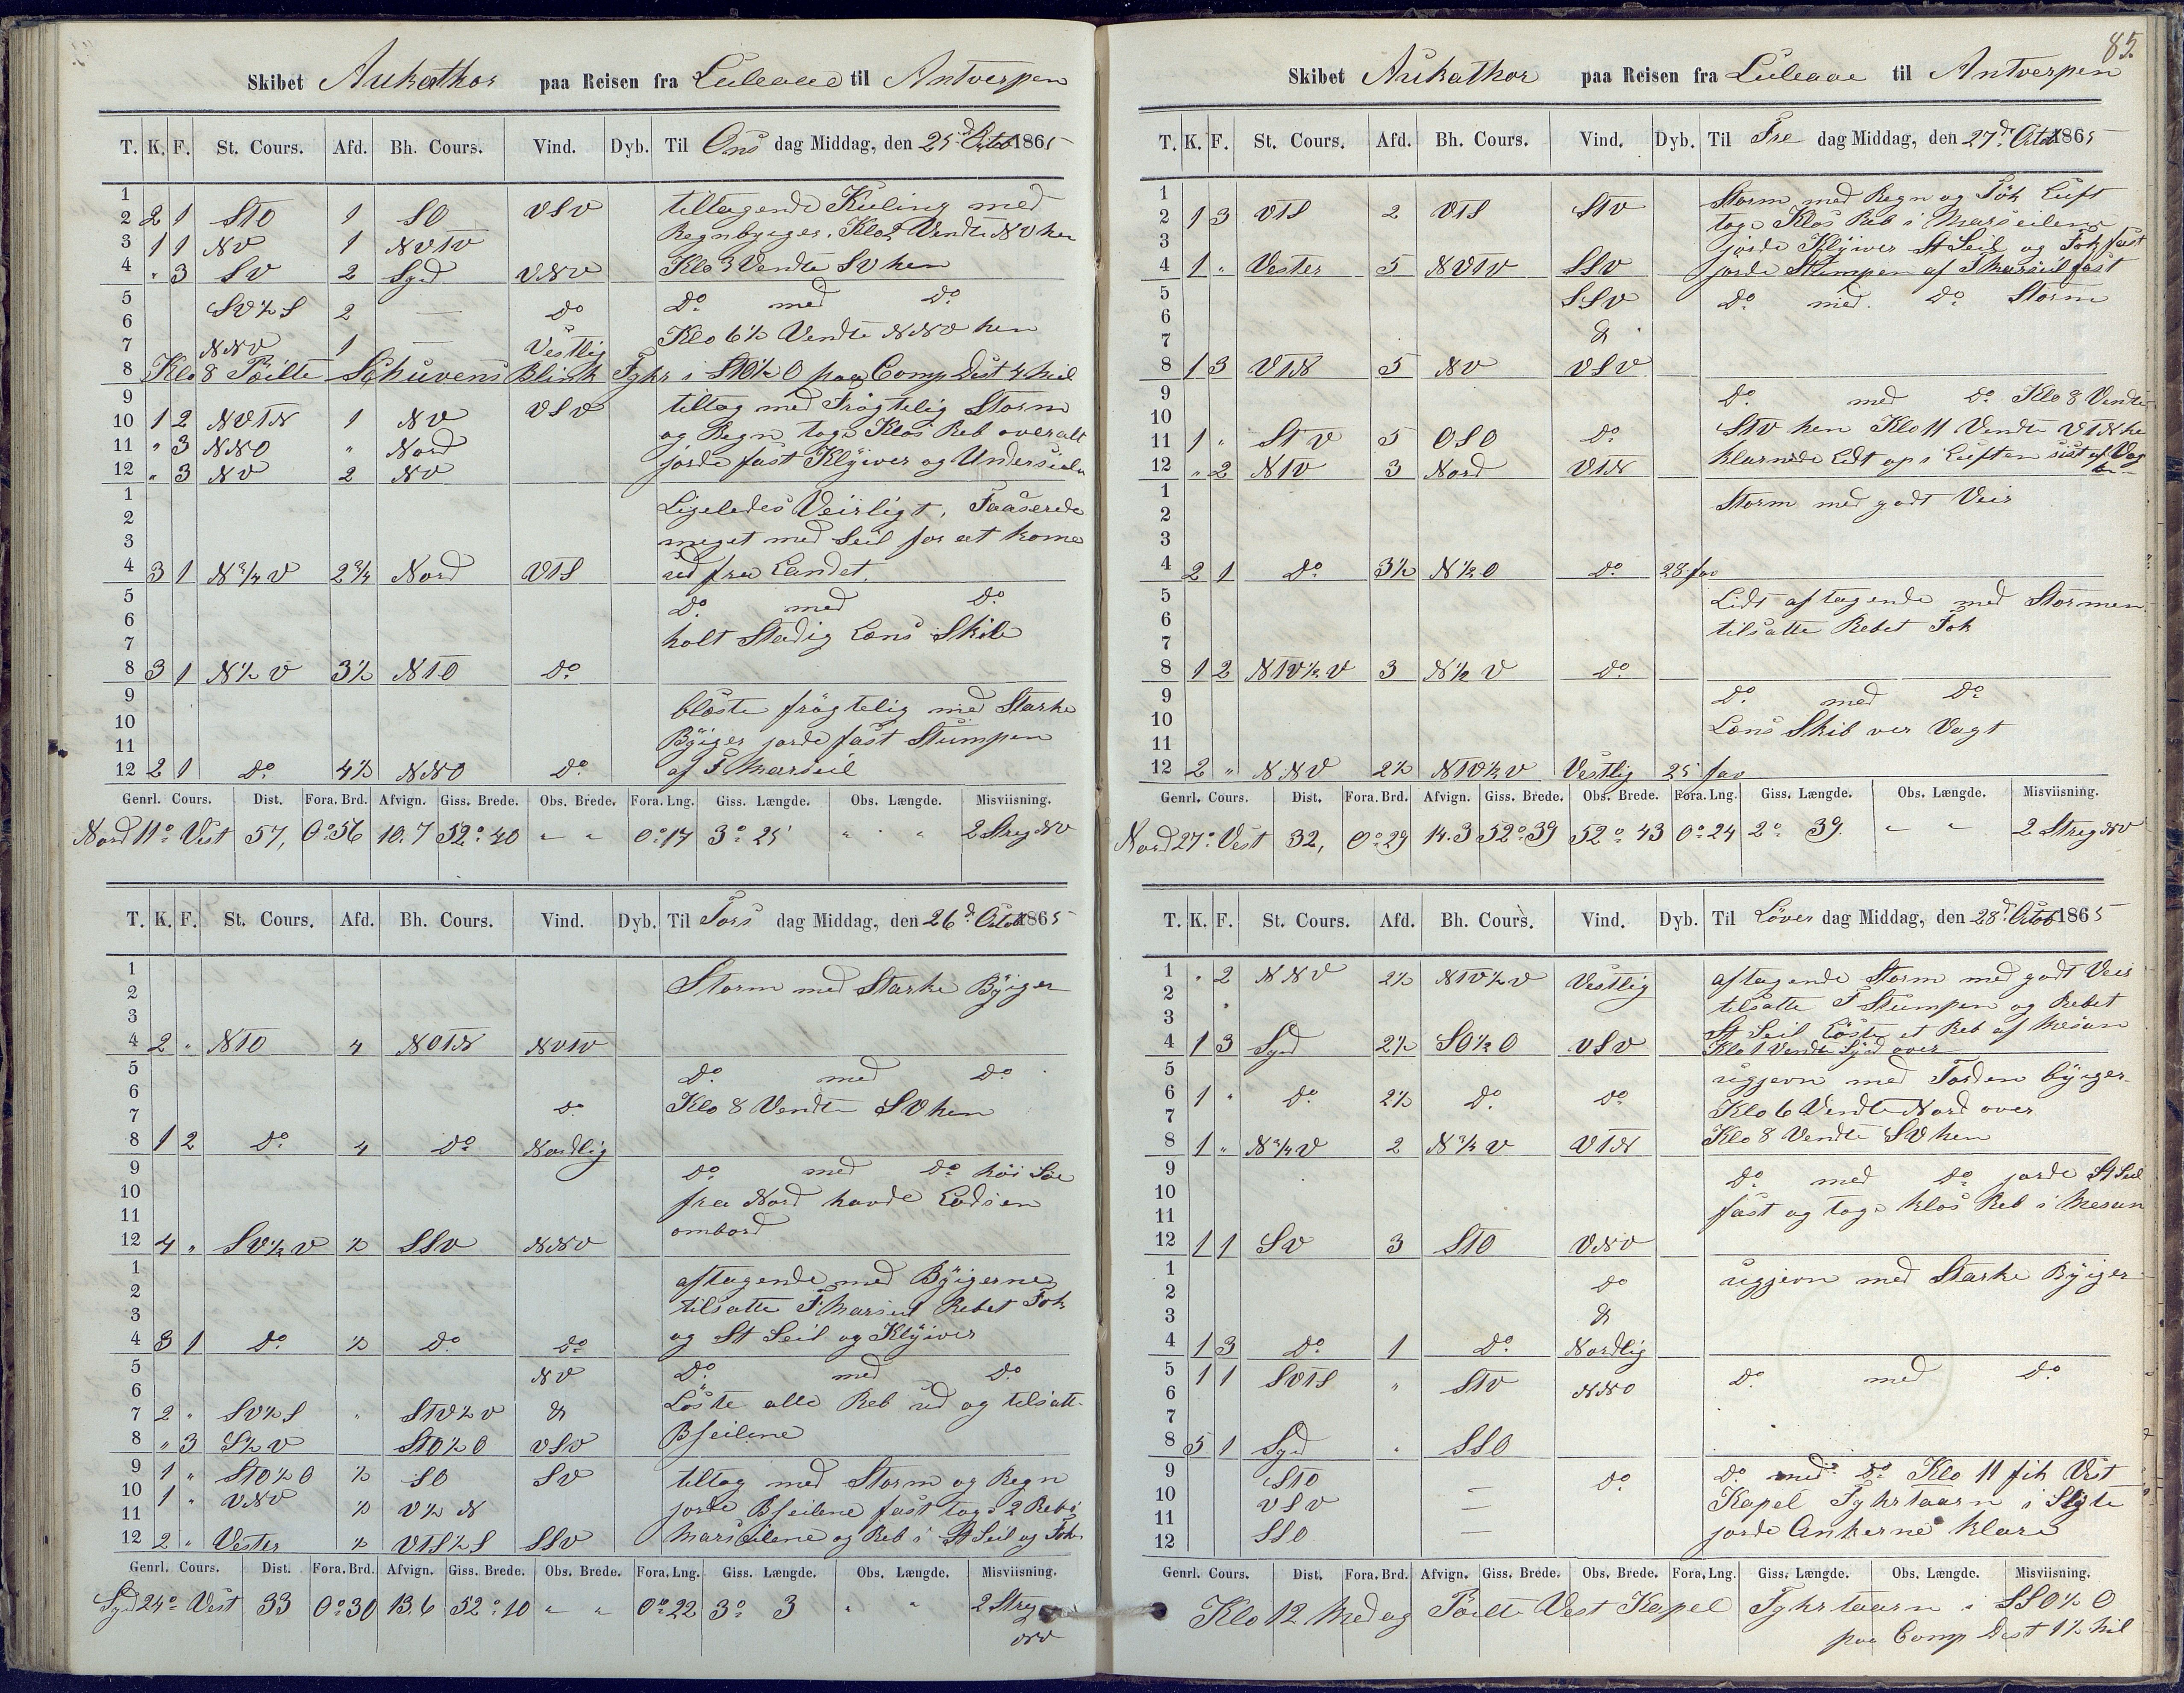 Skibet Aukathor paa Reisen fra Luleaae til Antverpen
T. K. F. St. Cours. Afd. Bh. Cours. Vind. Dyb. Til Ons dag Middag, den 25d Octob 1865
1 tiltagende Kuling med
2 2 1 STO 1 SO VSV Regnbyger. Klo 2 Vendte NV hen
3 1 1 NV 1 NVTV
4 " 3 SV 2 Syd VNV Klo 3 Vendte SV hen
5 SV½S 2 — Do Do med Do
6 Klo 6½ Vendte NNV hen
7 NNV 1 — Vestlig
8 Klo 8 Peilte Schuvens Blink Fyhr i STO½O paa Comp Dist 4 Mil
9 tiltog med Frögtelig Storm
10 1 2 NVTN 1 NV VSV og Regn toge Klos Reb overalt
11 " 3 NNO " Nord jorde fast Klyiver og Underseiln
12 " 3 NV 2 NV
1 Ligeledes Veirligt. Faaserede
2 meget med Seil for at kome
3
4 3 1 N¾V 2¾ Nord VTS ud fra Landet.
5 Do med Do
6 holt Stadig Lens Skib
7
8 3 1 N½V 3½ NTO Do
9 blöste frögtelig med Starke
10 Byiger jorde fast Stumpen
11
12 2 1 Do 4½ NNO Do af F Marseil
Genrl. Cours. Dist. Fora. Brd. Afvign. Giss. Brede. Obs. Brede. Fora. Lng. Giss. Længde. Obs. Længde. Misviisning.
Nord 11° Vest 57, 0°56 10.7 52°40 " " 0°17 3°25' " " 2 Streg NV
T. K. F. St. Cours. Afd. Bh. Cours. Vind. Dyb. Til Tors dag Middag, den 26d Octob 1865
1 Storm med Starke Byiger
2
3
4 2 " NTO 4 NOTN NVTV
5 Do med Do
6 Klo 8 Vendte SV hen
7 Do
8 1 2 Do 4 Do Nordlig
9 Do med Do höi Söe
10 fra Nord havde Lodsen
11 ombord
12 4 " SV½V ½ SSV NNV
1 aftagende med Byigerne
2 tilsatte F. Marseil Rebet Fok
3
4 3 1 Do ½ Do Do og St Seil og Klyiver
5 NV Do med Do
6 Löste alle Reb ud og tilsatt
7 2 " SV½S " STV½V &
8 " 3 S½V STO½O VSV Bseilene
9 1 " STO½O ½ SO SV tiltog med Storm og Regn
10 1 " VNV ½ V½N jorde Bseilene fast toge 2 Reb i
11
12 2 " Vester ½ VTS½S SSV Marseilene og Reb i St Seil og Fok
Genrl. Cours. Dist. Fora. Brd. Afvign. Giss. Brede. Obs. Brede. Fora. Lng. Giss. Længde. Obs. Længde. Misviisning.
Syd 24° Vest 33 0°30 13.6 52°10 " " 0°22 3° 3 " " 2 Streg
NV
85.
Skibet Aukathor paa Reisen fra Luleaae til Antverpen
T. K. F. St. Cours. Afd. Bh. Cours. Vind. Dyb. Til Fre dag Middag, den 27d Octob 1865
1 Storm med Regn og Tök Luft
2 1 3 VTS 2 VTS STV toge Klos Reb i Marseilene
3 jorde Klyiver St Seil og Fok fast
4 1 " Vester 5 NVTV SSV jorde Stumpen af F Marseil fast
5 SSV Do med Do Storm
6 &
7
8 1 3 VTN 5 NV VSV
9 Do med Do Klo 8 Vendte
10 STV hen Klo 11 Vendte VTN he
11 1 " STV 5 OSO Do klarnede Lidt op i Luften sist af Vag
12 " 2 NTV 3 Nord VTN ten
1 Storm med godt Veir
2
3
4 2 1 Do 3½ N½O Do 28 fav
5 Lidt aftagende med Stormen
6 tilsatte Rebet Fok
7
8 1 2 NTV½V 3 N½V Do
9 Do med Do
10 Lens Skib ver Vagt
11
12 2 " NNV 2½ NTV½V Vestlig 25 fav
Genrl. Cours. Dist. Fora. Brd. Afvign. Giss. Brede. Obs. Brede. Fora. Lng. Giss. Længde. Obs. Længde. Misviisning.
Nord 27° Vest 32, 0°29 14.3 52°39 52°43 0°24 2° 39. " " 2 Streg NV
T. K. F. St. Cours. Afd. Bh. Cours. Vind. Dyb. Til Löver dag Middag, den 28d Octob 1865
1 " 2 NNV 2½ NTV½V Vestlig aftagende Storm med godt Veir
2 tilsatte F Stumpen og Rebet
3 St Seil Löste et Reb af Mesan
4 1 3 Syd 2½ SO½O VSV Klo 1 Vendte Syd over
5 ugjevn med Torden byiger
6 1 " Do 2½ Do Do Klo 6 Vendte Nord over
7
8 1 " N¾V 2 N¾V VTN Klo 8 Vendte SV hen
9 Do med Do jorde St Seil
10 fast og toge Klos Reb i Mesan
11
12 1 1 SV 3 STO VNV
1 Do ugjevn med Starke Byiger
2
3 &
4 1 3 Do 1 Do Nordlig
5 1 1 SVTS " STV NNO Do med Do
6
7
8 5 1 Syd " SSO
9 STO — Do Do med Do Klo 11 fik Vest
10 VSV — Kapel Fyhrtaarn i Sigte
11
12 SSO — jorde Ankerne klare
Genrl. Cours. Dist. Fora. Brd. Afvign. Giss. Brede. Obs. Brede. Fora. Lng. Giss. Længde. Obs. Længde. Misviisning.
Klo 12 Medag Peilte Vest Kapel Fyhrtaarn i SSO½O
paa Comp Dist 1½ Mil